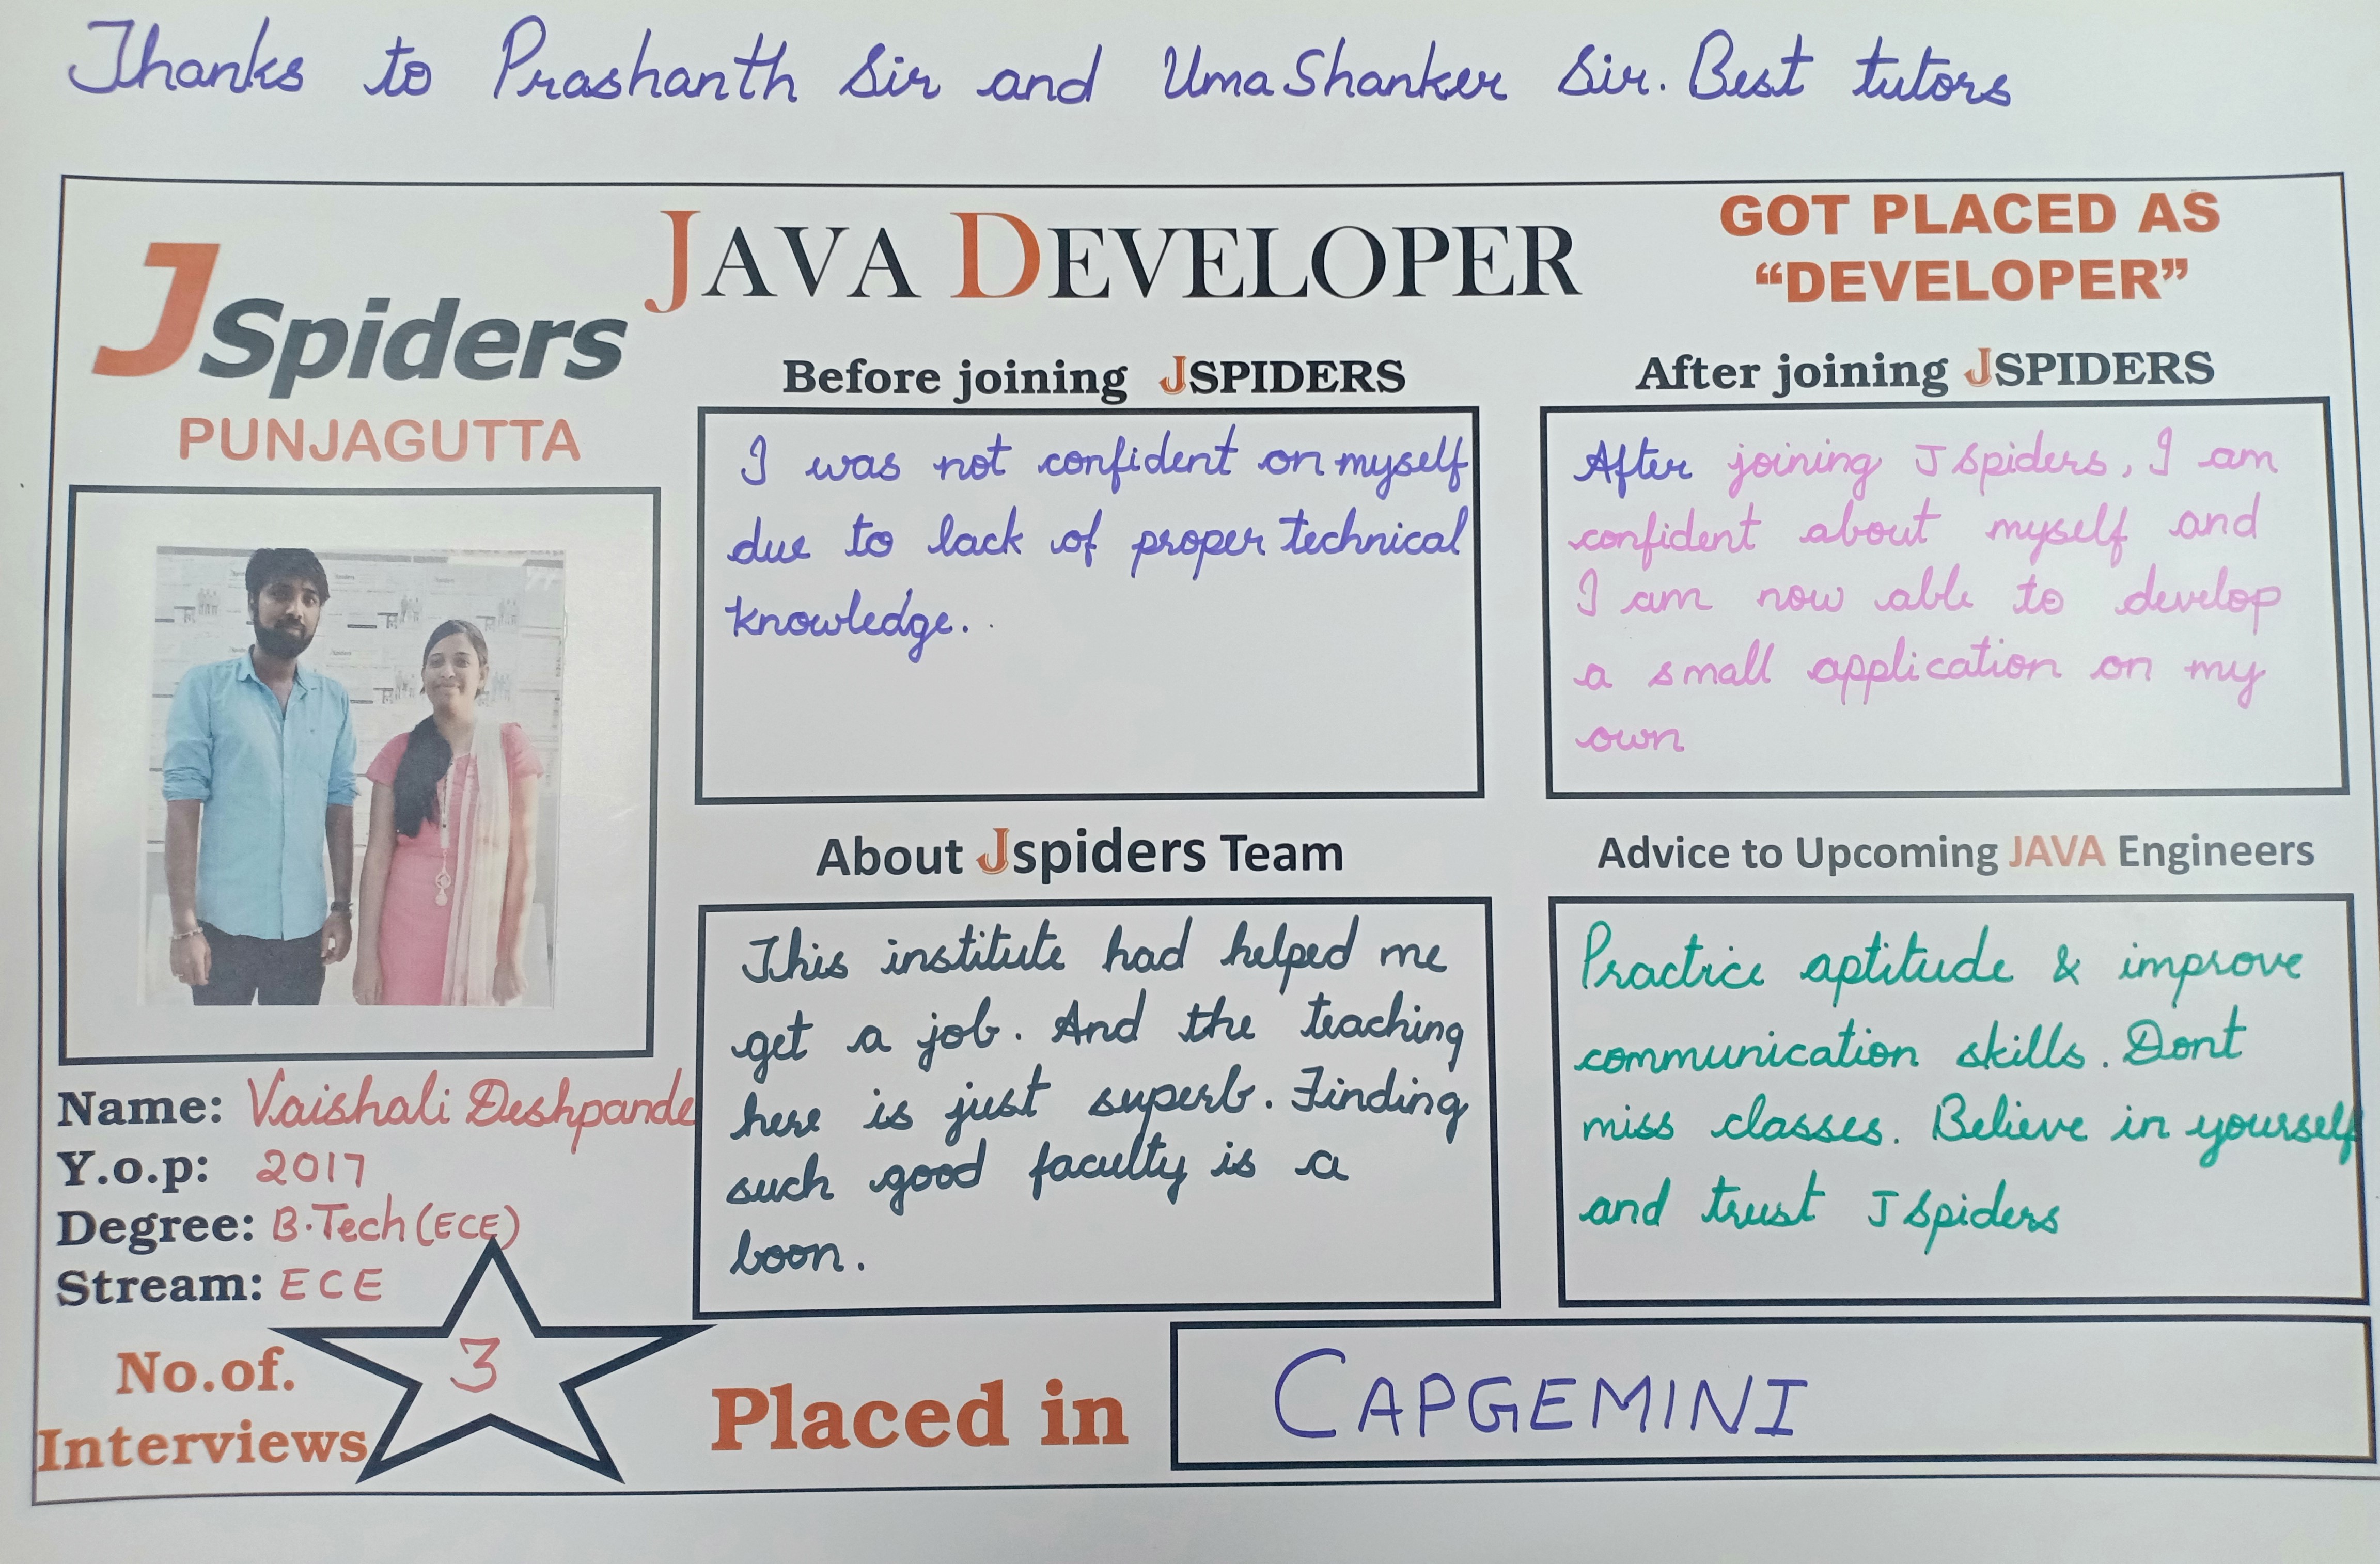 Thanks to Prashanth Sir and UmaShanker Sir. Best tutors
JAVA DEVELOPER
GOT PLACED AS
“DEVELOPER”
JSpiders
PUNJAGUTTA
Before joining JSPIDERS
I was not confident on myself
due to lack of proper technical
knowledge.
After joining JSPIDERS
After joining J Spiders, I am
confident about myself and
I am now able to develop
a small application on my
own
About Jspiders Team
This institute had helped me
get a job. And the teaching
here is just superb. Finding
such good faculty is a
boon.
Advice to Upcoming JAVA Engineers
Practice aptitude & improve
communication skills. Dont
miss classes. Believe in yourself
and trust J Spiders
Name: Vaishali Deshpande
Y.o.p: 2017
Degree: B.Tech (ECE)
Stream: ECE
No.of.
Interviews
3
Placed in CAPGEMINI